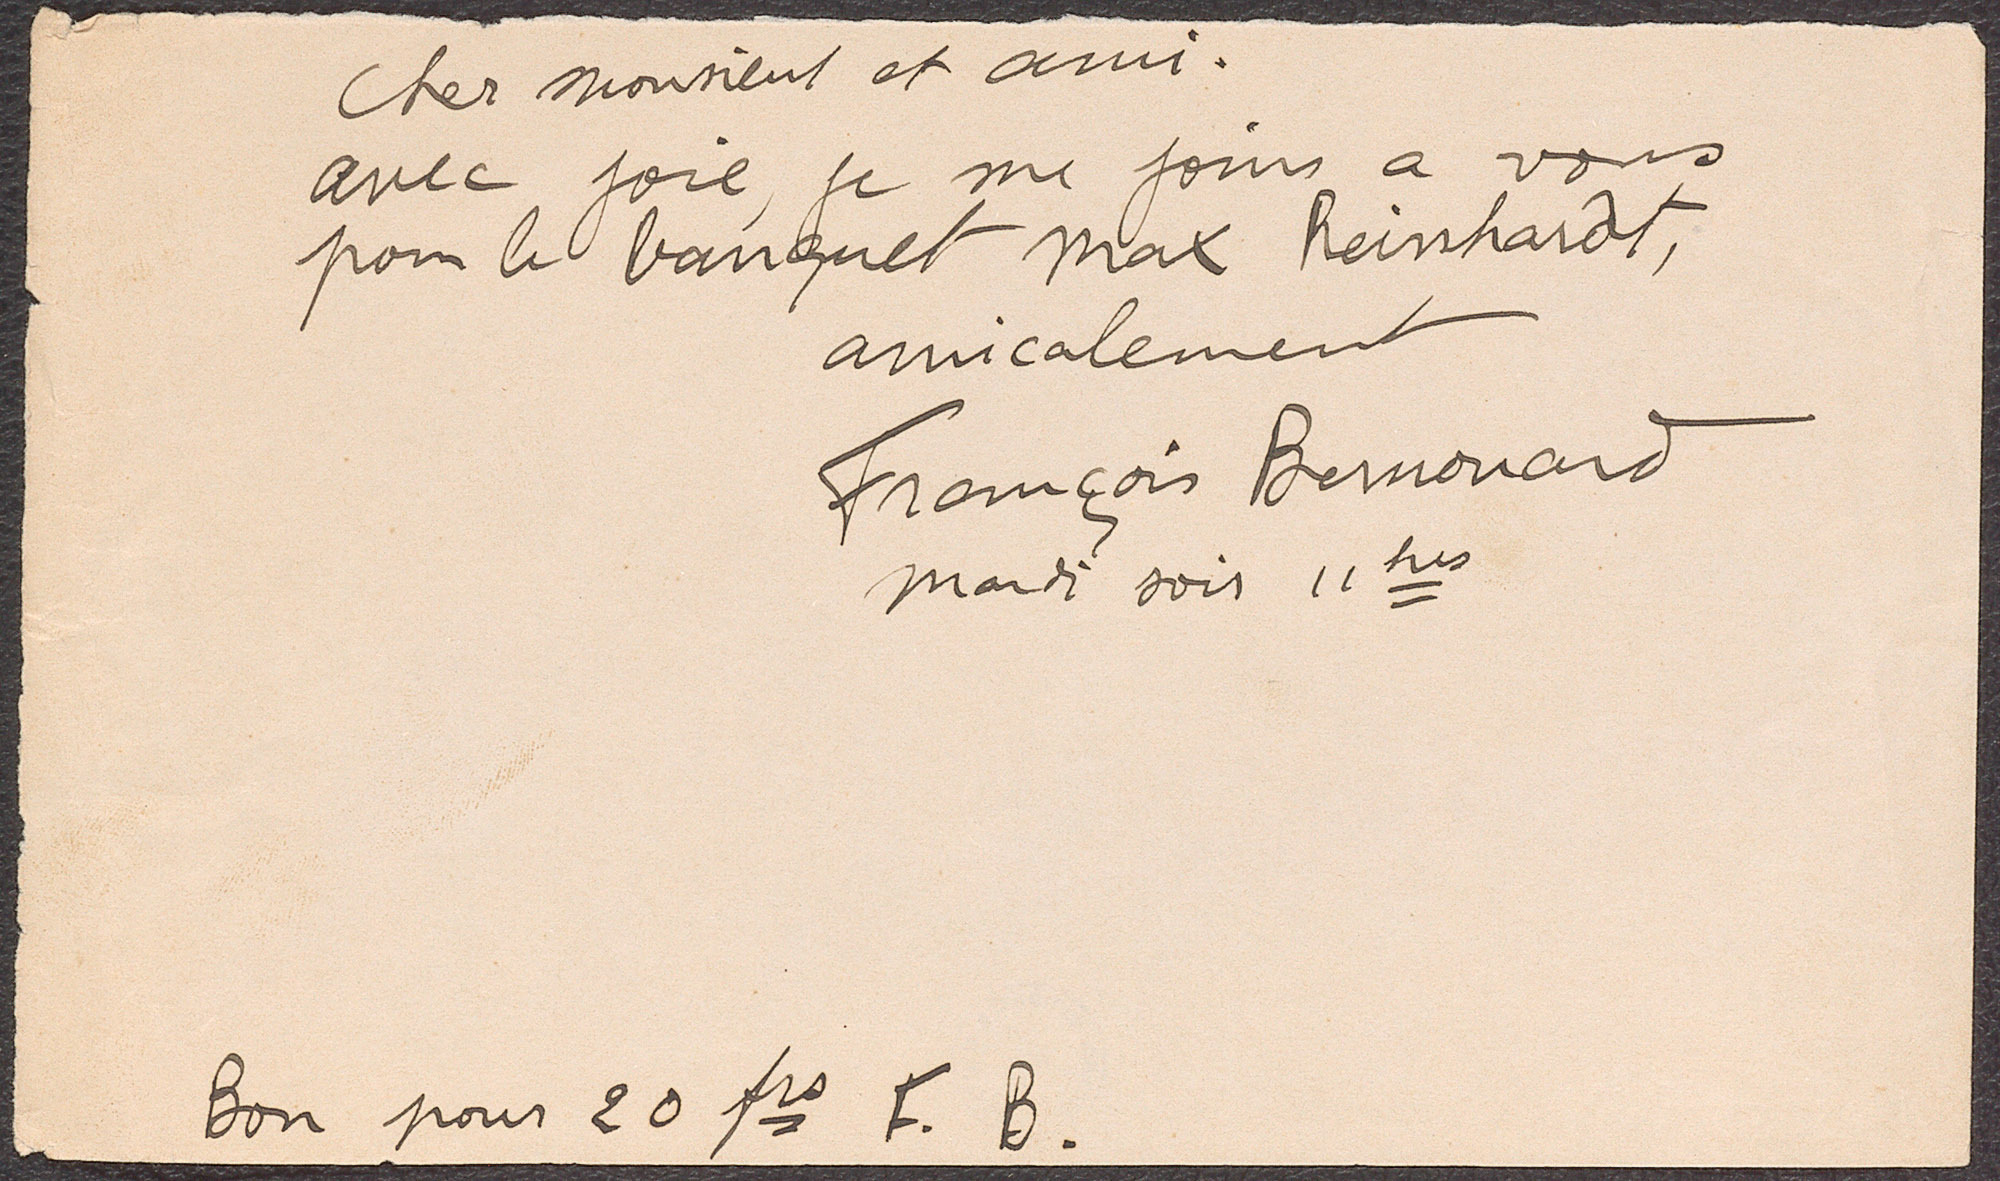 Cher monsieur et ami.
avec joie, je me joins a vous
pour le banquet Max Reinhardt,
amicalement
François Bernouard
Mardi soir 11 hres
Bon pour 20 frs F. B.